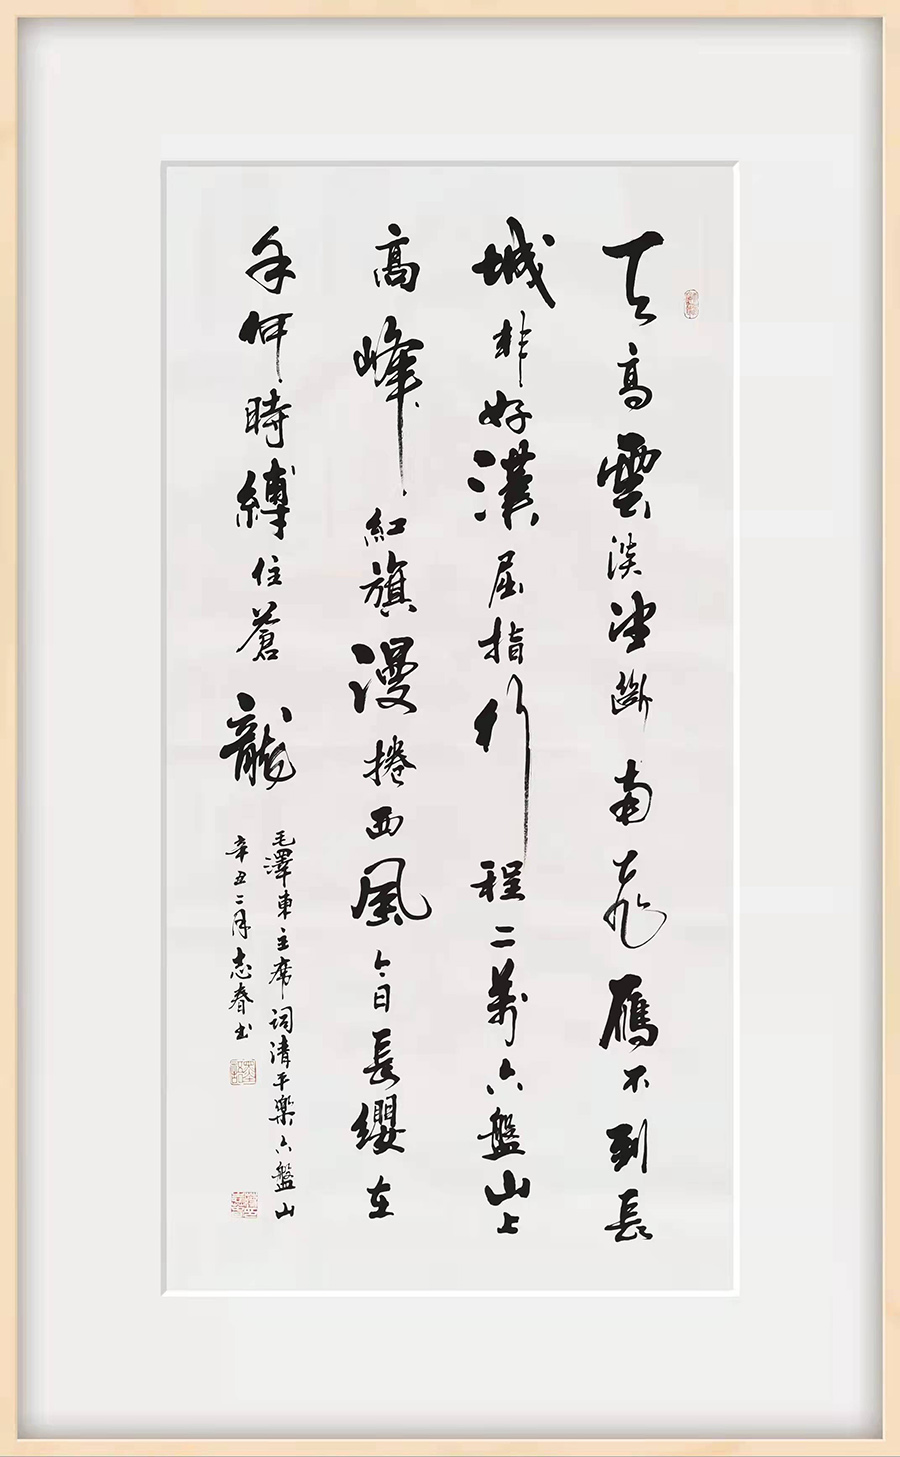 天高雲淡望斷南飛雁不到長
城非好漢屈指行程二萬六盤山上
高峰紅旗漫捲西風今日長纓在
手何時縛住蒼龍
毛澤東主席詞清平樂六盤山
辛丑二月志春书